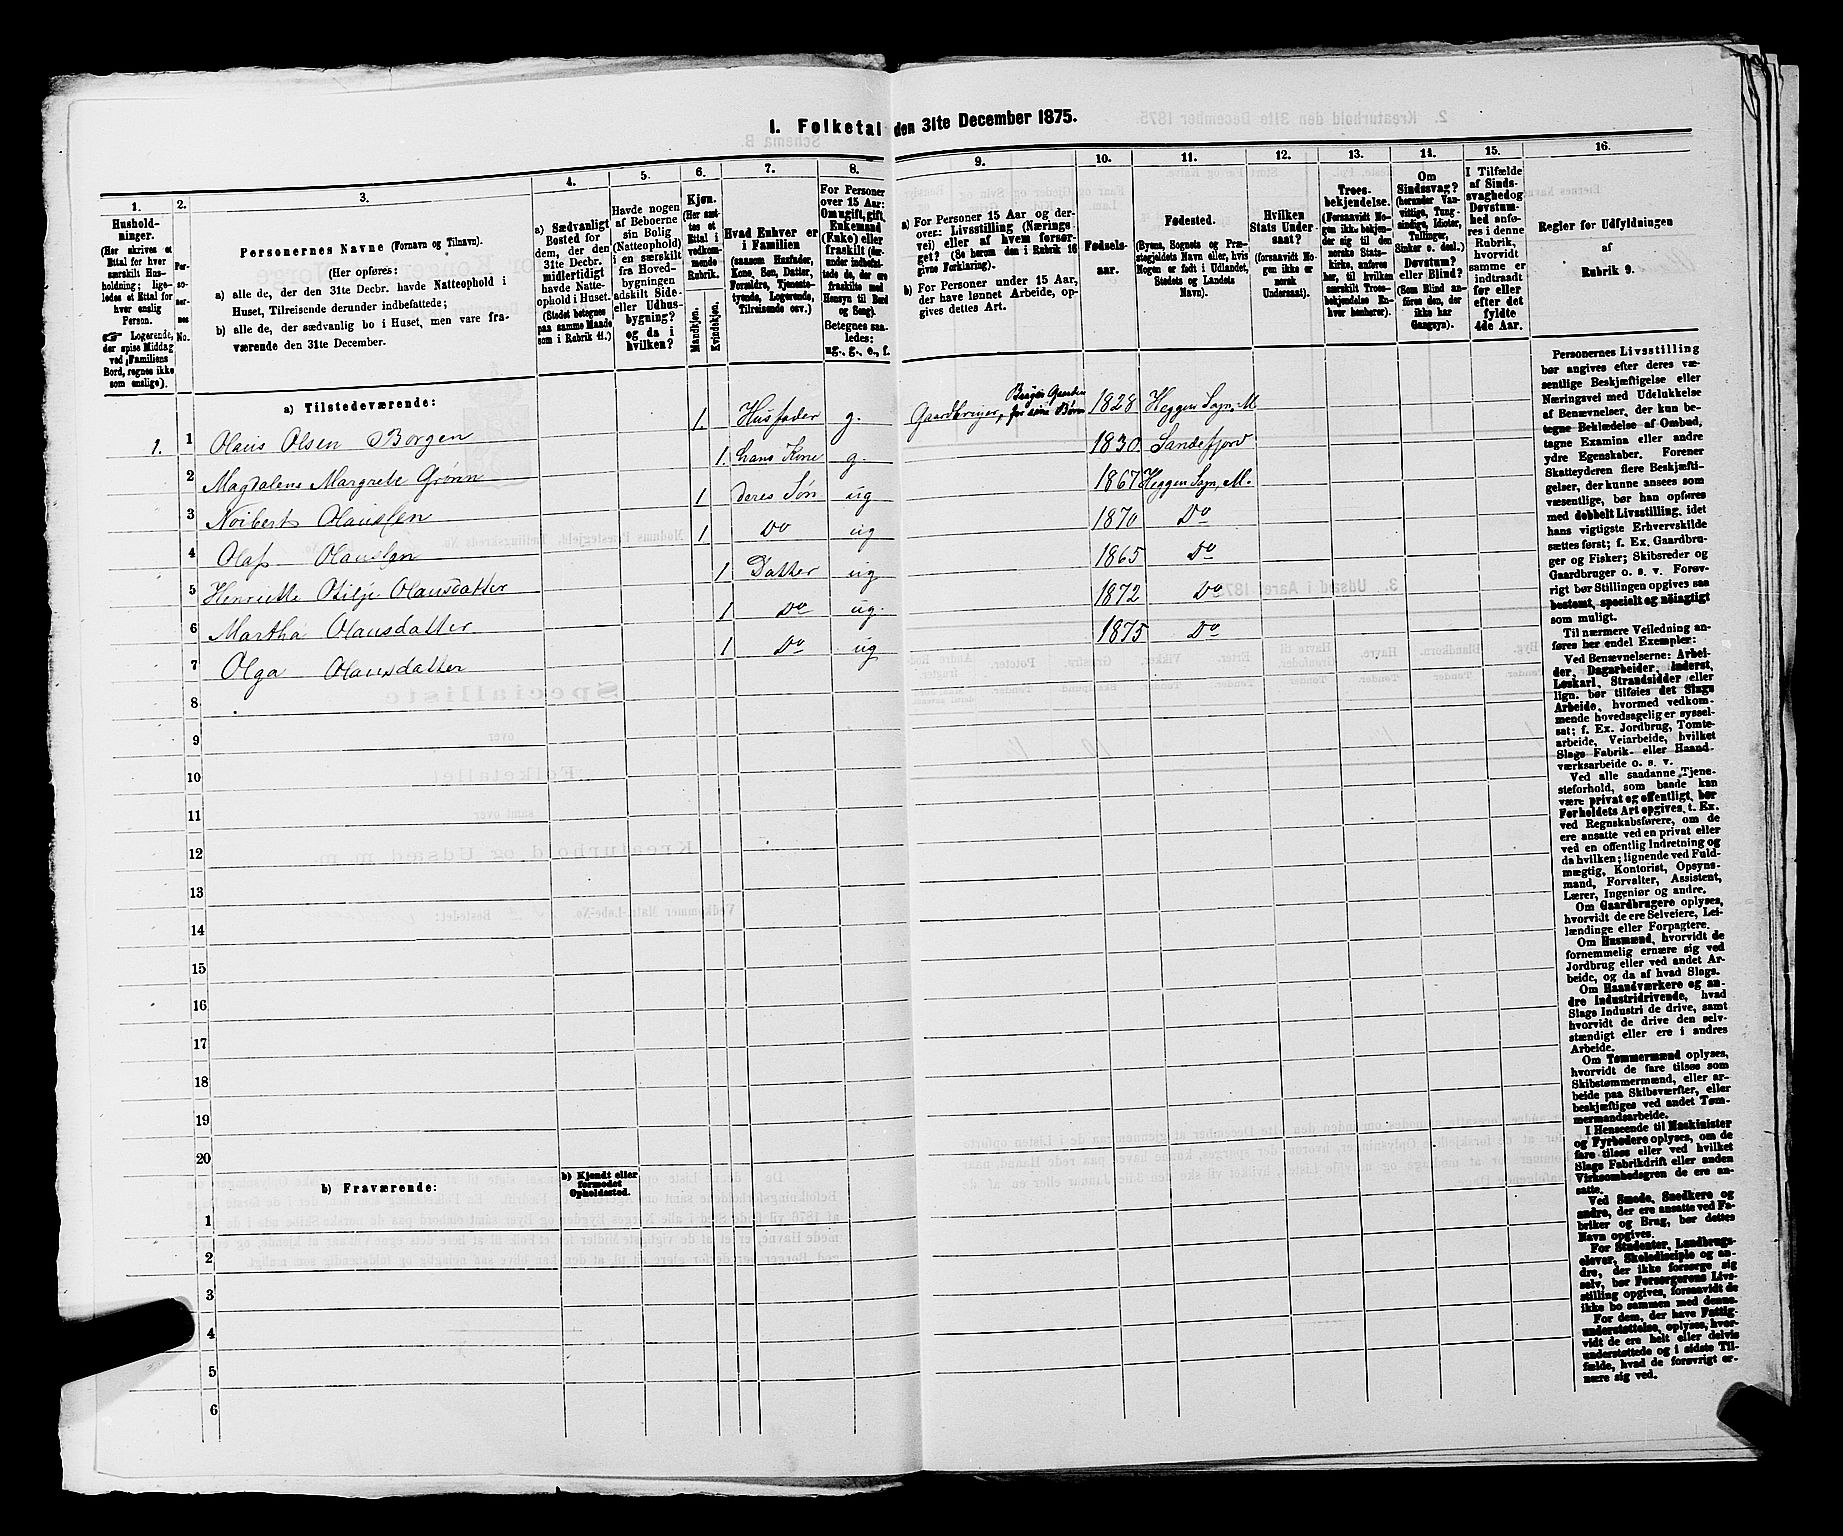 I. Folketal den 31te December 1875.
1. 2. 3. 4. 5. 6. 7. 8. 9. 10. 11. 12. 13. 14. 15. 16.
Hushold-
ninger.
(Her skrives et
Ettal for hver
særskilt Hus-
holdning; lige-
ledes et Ettal for
hver enslig
Person.
☞ Logerende,
der spise Middag
ved Familiens
Bord, regnes ikke
som enslige).
Per-
so-
ner-
nes
No.
Personernes Navne (Fornavn og Tilnavn).
(Her opføres:
a) alle de, der den 31te Decbr. havde Natteophold i
Huset, Tilreisende derunder indbefattede;
b) alle de, der sædvanlig bo i Huset, men vare fra-
værende den 31te December.
a) Sædvanligt
Bosted for
dem, der den
31te Decbr.
midlertidigt
havde Natte-
ophold i Huset.
(Stedet betegnes
paa samme Maade
som i Rubrik 11.)
Havde nogen
af Beboerne
sin Bolig
(Natteophold)
i en særskilt
fra Hoved-
bygningen
adskilt Side-
eller Udhus-
bygning?
og da i
hvilken?
Kjøn.
(Her sæt-
tes et
Ettal i
vedkom-
mende
Rubrik.
Mandkjøn.
Kvindekjøn.
Hvad Enhver er
i Familien
(saasom Husfader,
Kone, Søn, Datter,
Forældre, Tjeneste-
tyende, Logerende,
Tilreisende osv.)
For Personer
over 15 Aar:
Om ugift, gift,
Enkemand
(Enke) eller
fraskilt (der-
under indbefat-
tede de, der ere
fraskilte med
Hensyn til Bord
og Seng).
Betegnes saa-
ledes:
ug., g., e., f.
a) For Personer 15 Aar og der-
over: Livsstilling (Nærings-
vei) eller af hvem forsør-
get? (Se herom den i Rubrik 16
givne Forklaring).
b) For Personer under 15 Aar,
der have lønnet Arbeide, op-
gives dettes Art.
Fødsels-
aar.
Fødested.
(Byens, Sognets og Præ-
stegjeldets Navn eller, hvis
Nogen er født i Udlandet,
Stedets og Landets
Navn).
Hvilken
Stats Under-
saat?
(forsaavidt No-
gen ikke er
norsk
Undersaat).
Troes-
bekjendelse.
(Forsaavidt No-
gen ikke bekjen-
der sig til den
norske Stats-
kirke, anføres
her, til hvilken
særskilt Troes-
bekjendelse En-
hver henhører).
Om
Sindssvag?
(herunder Van-
vittige, Tung-
sindige, Idioter,
Tullinger,
Sinker o. desl.)
Døvstum?
eller Blind?
(Som Blind an-
føres den, der
ikke har
Gangsyn).
I Tilfælde
af Sinds-
svaghed og
Døvstum-
hed anfø-
res i denne
Rubrik,
hvorvidt
samme er
indtraadt
før eller
efter det
fyldte
4de Aar.
Regler for Udfyldningen
af
Rubrik 9.
a) Tilstedeværende:
1. 1 Olaus Olsen Borgen 1. Husfader g. Gaardbruger, Bruger Gaarden for sine Børn 1828 Heggen Sogn, M
2 Magdalene Margrete Grønn 1. hans Kone g. 1830 Sandefjord
3 Noibert Olaussen 1 deres Søn ug 1867 Heggen Sogn, M.
4 Olaf Olaussen 1 Do ug 1870 Do
5 Henriette Otilje Olausdatter 1 Datter ug 1865 Do
6 Martha Olausdatter 1 Do ug. 1872 Do
7 Olga Olausdatter 1 Do ug 1875 Do
8
9
10
11
12
13
14
15
16
17
18
19
20
b) Fraværende:
b) Kjendt eller
formodet
Opholdssted.
1
2
3
4
5
6
Personernes Livsstilling
bør angives efter deres væ-
sentlige Beskjæftigelse eller
Næringsvei med Udelukkelse
af Benævnelser, der kun be-
tegne Beklædelse af Ombud,
tagne Examina eller andre
ydre Egenskaber. Forener
Skatteyderen flere Beskjæfti-
gelser, der kunne ansees som
væsentlige, bør han opføres
med dobbelt Livsstilling, idet
hans vigtigste Erhvervskilde
sættes først; f. Ex. Gaardbru-
ger og Fisker; Skibsreder og
Gaardbruger o. s. v. Forøv-
rigt bør Stillingen opgives saa
bestemt, specielt og nøiagtigt
som muligt.
Til nærmere Veiledning an-
føres her endel Exempler:
Ved Benævnelserne: Arbei-
der, Dagarbeider, Inderst,
Løskarl, Strandsidder eller
lign. bør tilføies det Slags
Arbeide, hvormed vedkom-
mende hovedsagelig er syssel-
sat; f. Ex. Jordbrug, Tomte-
arbeide, Veiarbeide, hvilket
Slags Fabrik- eller Haand-
værksarbeide o. s. v.
Ved alle saadanne Tjene-
steforhold, som baade kan
være privat og offentligt, bør
Forholdets Art opgives, t. Ex.
ved Regnskabsførere, om de
ere ansatte ved en privat eller
ved en offentlig Indretning og
da hvilken; lignende ved Fuld-
mægtig, Kontorist, Opsyns-
mand, Forvalter, Assistent,
Lærer, Ingeniør og andre.
Om Gaardbrugere oplyses,
hvorvidt de ere Selveiere, Lei-
lændinge eller Forpagtere.
Om Husmænd, hvorvidt de
fornemmelig ernære sig ved
Jordbrug eller ved andet Ar-
beide, og da af hvad Slags.
Om Haandværkere og an-
dre Industridrivende, hvad
Slags Industri de drive, samt
hvorvidt de drive den selv-
stændigt eller ere i andres
Arbeide.
Om Tømmermænd oplyses,
hvorvidt de fare tilsøs som
Skibstømmermænd, eller ar-
beide paa Skibsværfter, eller
beskjæftiges ved andet Tøm-
mermandsarbeide.
I Henseende til Maskinister
og Fyrbødere oplyses, om de
fare tilsøs eller ved hvilket
Slags Fabrikdrift eller anden
Virksomhedsgren de ere an-
satte.
Ved Smede, Snedkere og
andre, der ere ansatte ved Fa-
briker og Brug, bør dettes
Navn opgives.
For Studenter, Landbrugs-
elever, Skoledisciple og an-
dre, der ikke forsørge sig
selv, bør Forsørgerens Livs-
stilling opgives, forsaavidt de
ikke bo sammen med denne.
For dem, der have Fattig-
understøttelse, oplyses, hvor-
vidt de ere helt eller delvis
understøttede og i sidste Til-
fælde, hvad de forøvrigt er-
nære sig ved.